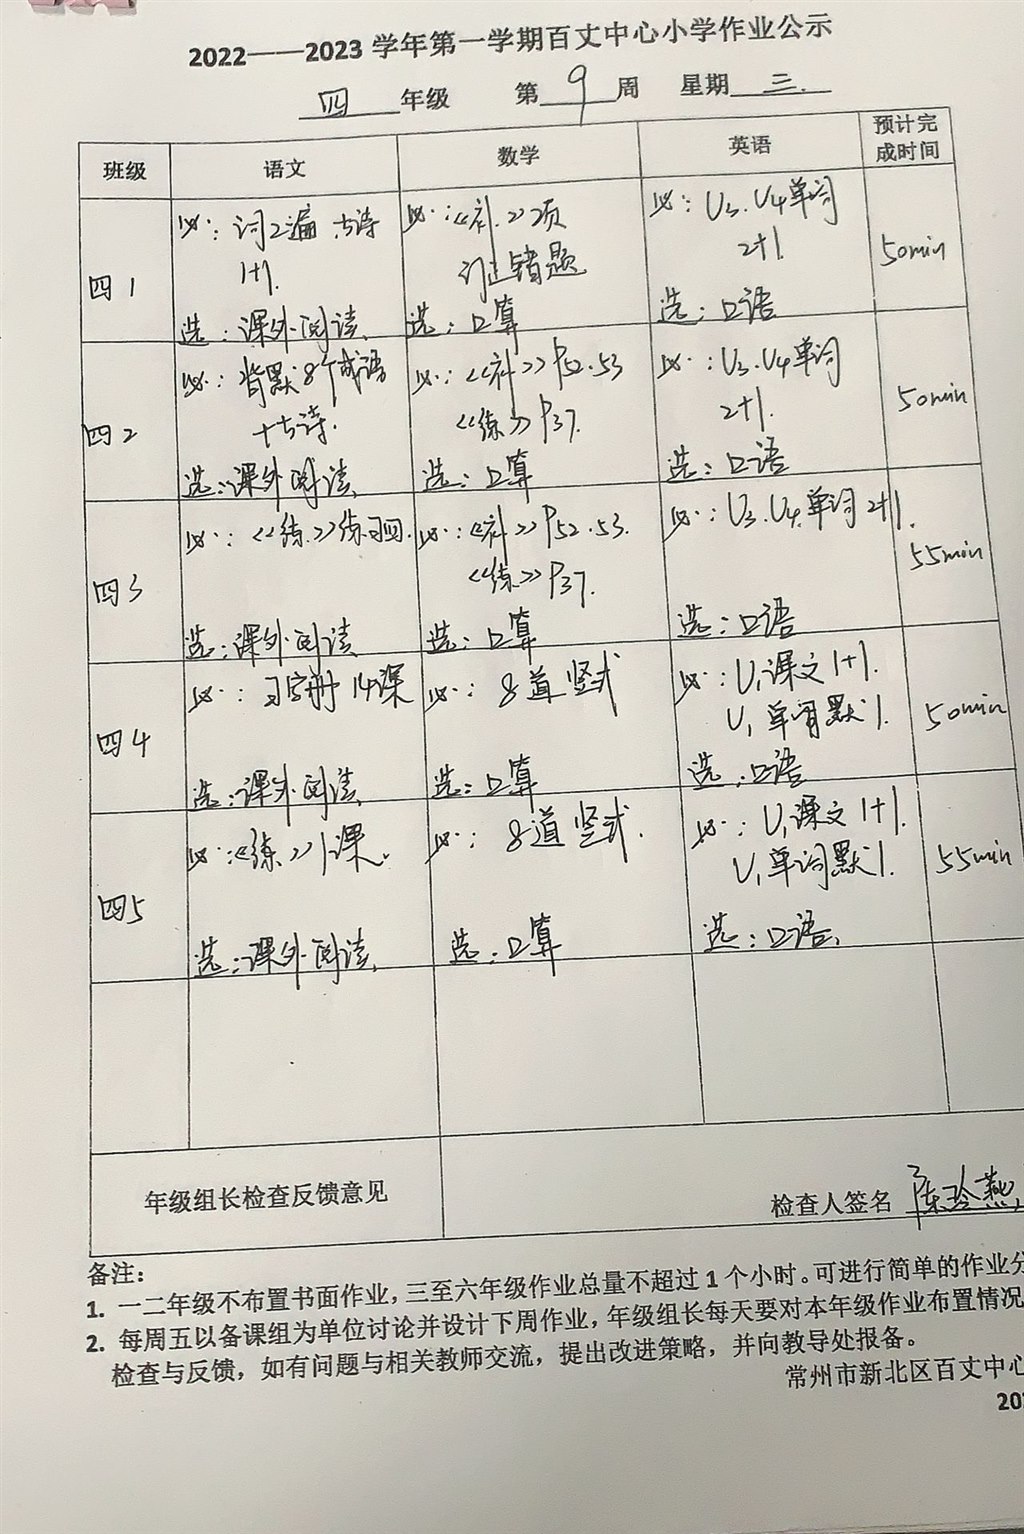 2022——2023 学年第一学期百丈中心小学作业公示
四 年级 第 9 周 星期 三.
班级 语文 数学 英语 预计完成时间
四1
必：词2遍 古诗
1+1.
选：课外阅读.
必：《补》
订正错题
选：口算
必：U3.U4单词
2+1.
选：口语
50min
四2
必：背默8个成语
+古诗.
选：课外阅读.
必：《补》P52.53
《练》P37.
选：口算
必：U3.U4单词
2+1.
选：口语
50min
四3
必：《练》练习四.
选：课外阅读.
必：《补》P52.53.
《练》P37.
选：口算
必：U3.U4单词 2+1.
选：口语
55min
四4
必：习字册 14课
选：课外阅读.
必：8道竖式
选：口算
必：U1课文 1+1.
U1单词默1.
选：口语
50min
四5
必：《练》1课.
选：课外阅读.
必：8道竖式.
选：口算
必：U1课文 1+1.
U1单词默1.
选：口语.
55min
年级组长检查反馈意见
检查人签名 陈玲燕
备注：
1. 一二年级不布置书面作业，三至六年级作业总量不超过 1 个小时。可进行简单的作业分
2. 每周五以备课组为单位讨论并设计下周作业，年级组长每天要对本年级作业布置情况
检查与反馈，如有问题与相关教师交流，提出改进策略，并向教导处报备。
常州市新北区百丈中心
202